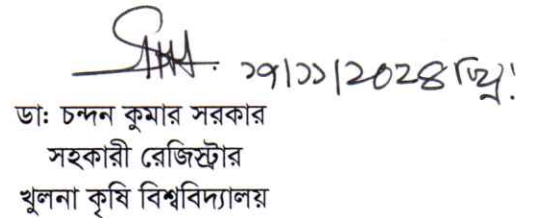 ১৭/১১/২০২৪ খ্রি:
ডাঃ চন্দন কুমার সরকার
সহকারী রেজিস্ট্রার
খুলনা কৃষি বিশ্ববিদ্যালয়